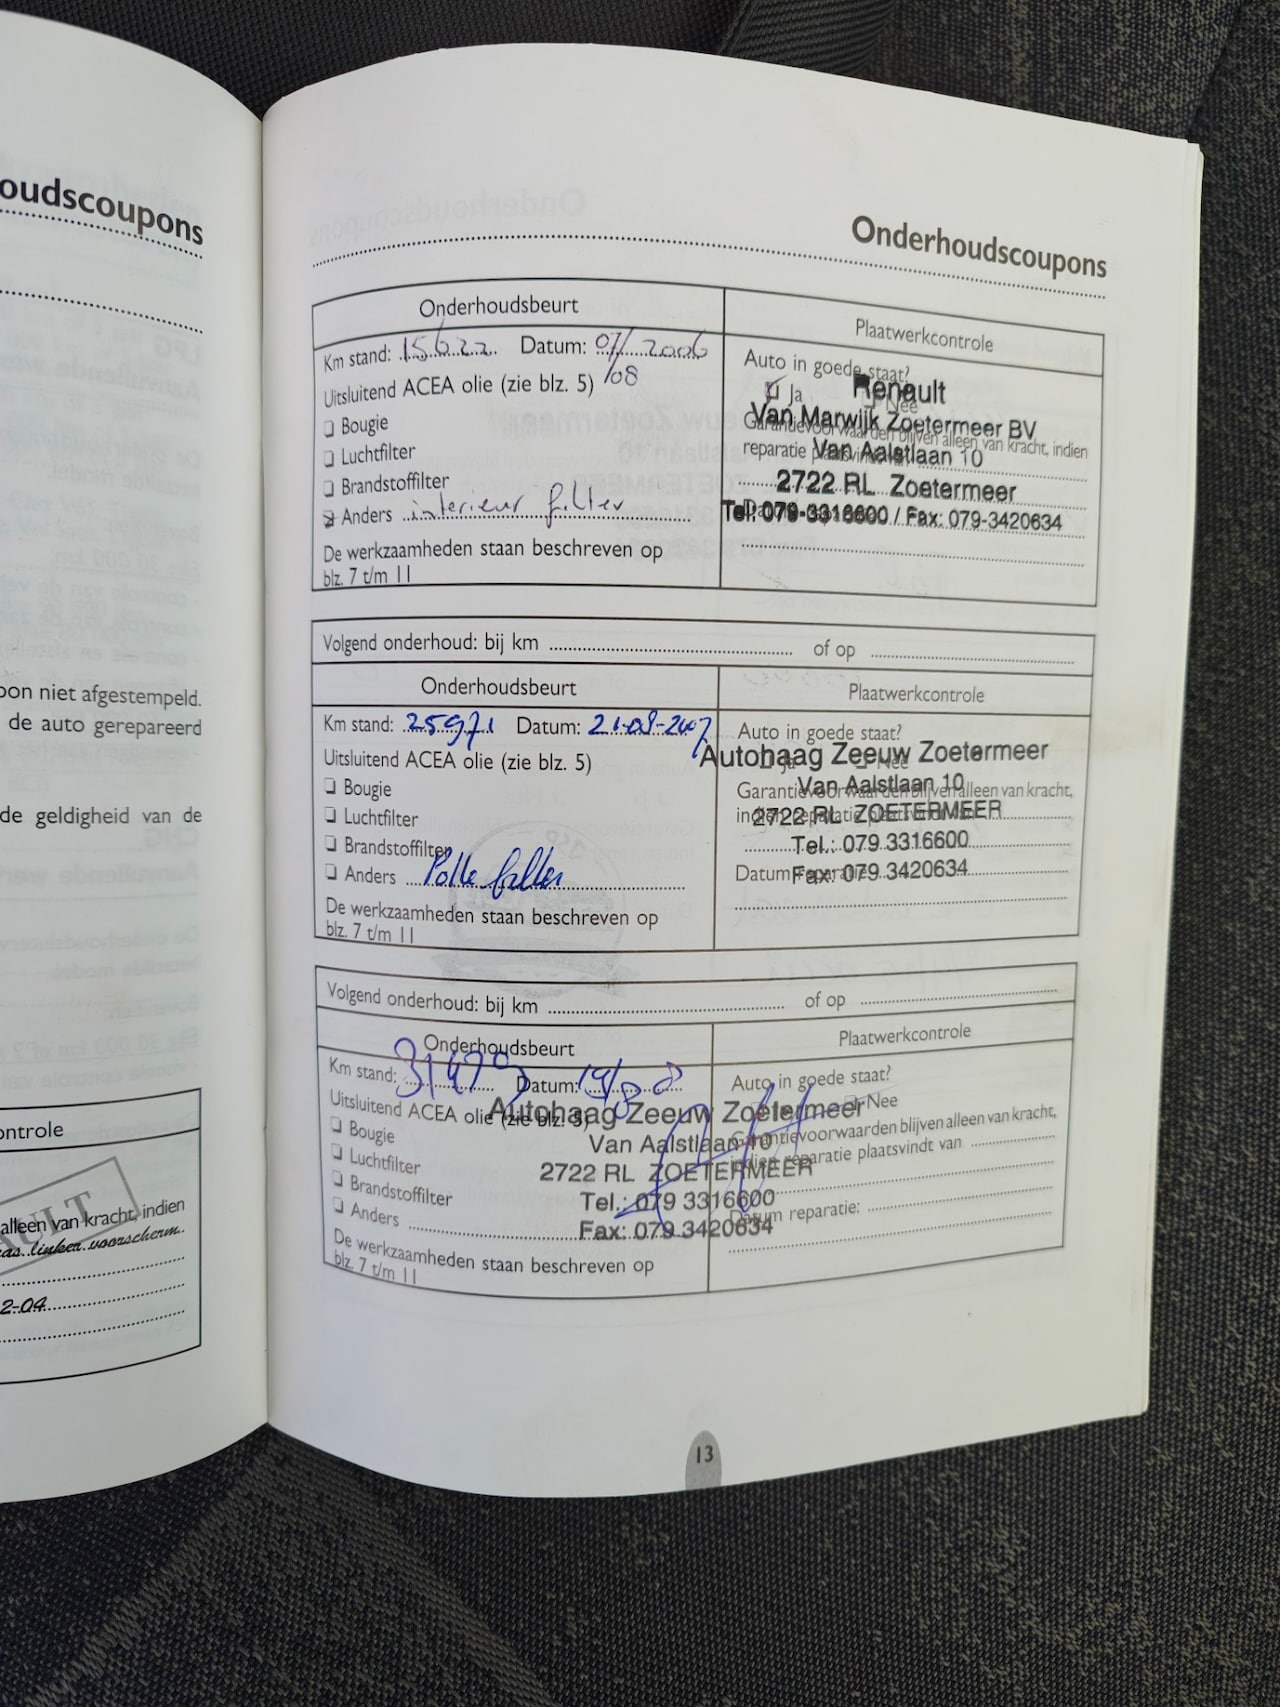 oudscoupons
oon niet afgestempeld.
de auto gerepareerd
de geldigheid van de
ontrole
ULT
alleen van kracht, indien
as linker voorscherm.
2-04
Onderhoudscoupons
Onderhoudsbeurt
Plaatwerkcontrole
Km stand: 15622 Datum: 07/2006
/08
Uitsluitend ACEA olie (zie blz. 5)
Bougie
Luchtfilter
Brandstoffilter
Anders interieur filter
De werkzaamheden staan beschreven op
blz. 7 t/m 11
Auto in goede staat?
Ja Nee
Garantievoorwaarden blijven alleen van kracht, indien
reparatie
Renault
Van Marwijk Zoetermeer BV
Van Aalstlaan 10
2722 RL Zoetermeer
Tel: 079-3316600 / Fax: 079-3420634
Volgend onderhoud: bij km of op
Onderhoudsbeurt
Plaatwerkcontrole
Km stand: 25971 Datum: 21-08-2007
Uitsluitend ACEA olie (zie blz. 5)
Bougie
Luchtfilter
Brandstoffilter
Anders
De werkzaamheden staan beschreven op
blz. 7 t/m 11
Auto in goede staat?
Ja Nee
Garantievoorwaarden blijven alleen van kracht,
indien reparatie plaatsvindt van
Datum reparatie:
Autohaag Zeeuw Zoetermeer
Van Aalstlaan 10
2722 RL ZOETERMEER
Tel.: 079 3316600
Fax: 079 3420634
Volgend onderhoud: bij km of op
Onderhoudsbeurt
Plaatwerkcontrole
Km stand: Datum:
Uitsluitend ACEA olie (zie blz. 5)
Bougie
Luchtfilter
Brandstoffilter
Anders
De werkzaamheden staan beschreven op
blz. 7 t/m 11
Auto in goede staat?
Nee
Garantievoorwaarden blijven alleen van kracht,
indien reparatie plaatsvindt van
Datum reparatie:
Autohaag Zeeuw Zoetermeer
Van Aalstlaan 10
2722 RL ZOETERMEER
Tel.: 079 3316600
Fax: 079 3420634
13